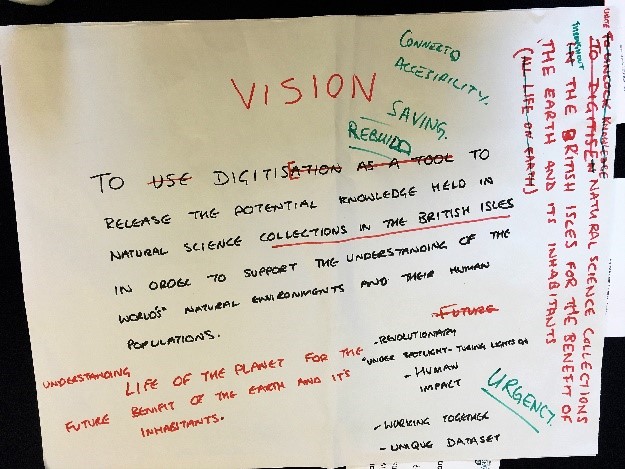 VISION
CONNECTD
ACCESIBILITY.
SAVING.
REBUILD
TO USE DIGITISEATION AS A TOOL TO
RELEASE THE POTENTIAL KNOWLEDGE HELD IN
NATURAL SCIENCE COLLECTIONS IN THE BRITISH ISLES
IN ORDER TO SUPPORT THE UNDERSTANDING OF THE
WORLD'S NATURAL ENVIRONMENTS AND THEIR HUMAN
POPULATIONS.
UNDERSTANDING LIFE OF THE PLANET FOR THE
FUTURE BENIFIT OF THE EARTH AND IT'S
INHABITANTS.
FUTURE
- REVOLUTIONARY
"UNDER SPOTLIGHT - TURING LIGHTS ON
- HUMAN
IMPACT
- WORKING TOGETHER
- UNIQUE DATASET
URGENCY.
TO UNLOCK KNOWLEDGE
TO DIGITISE NATURAL SCIENCE COLLECTIONS
THROUGHOUT
IN THE BRITISH ISLES FOR THE BENEFIT OF
THE EARTH AND ITS INHABITANTS
(ALL LIFE ON EARTH)